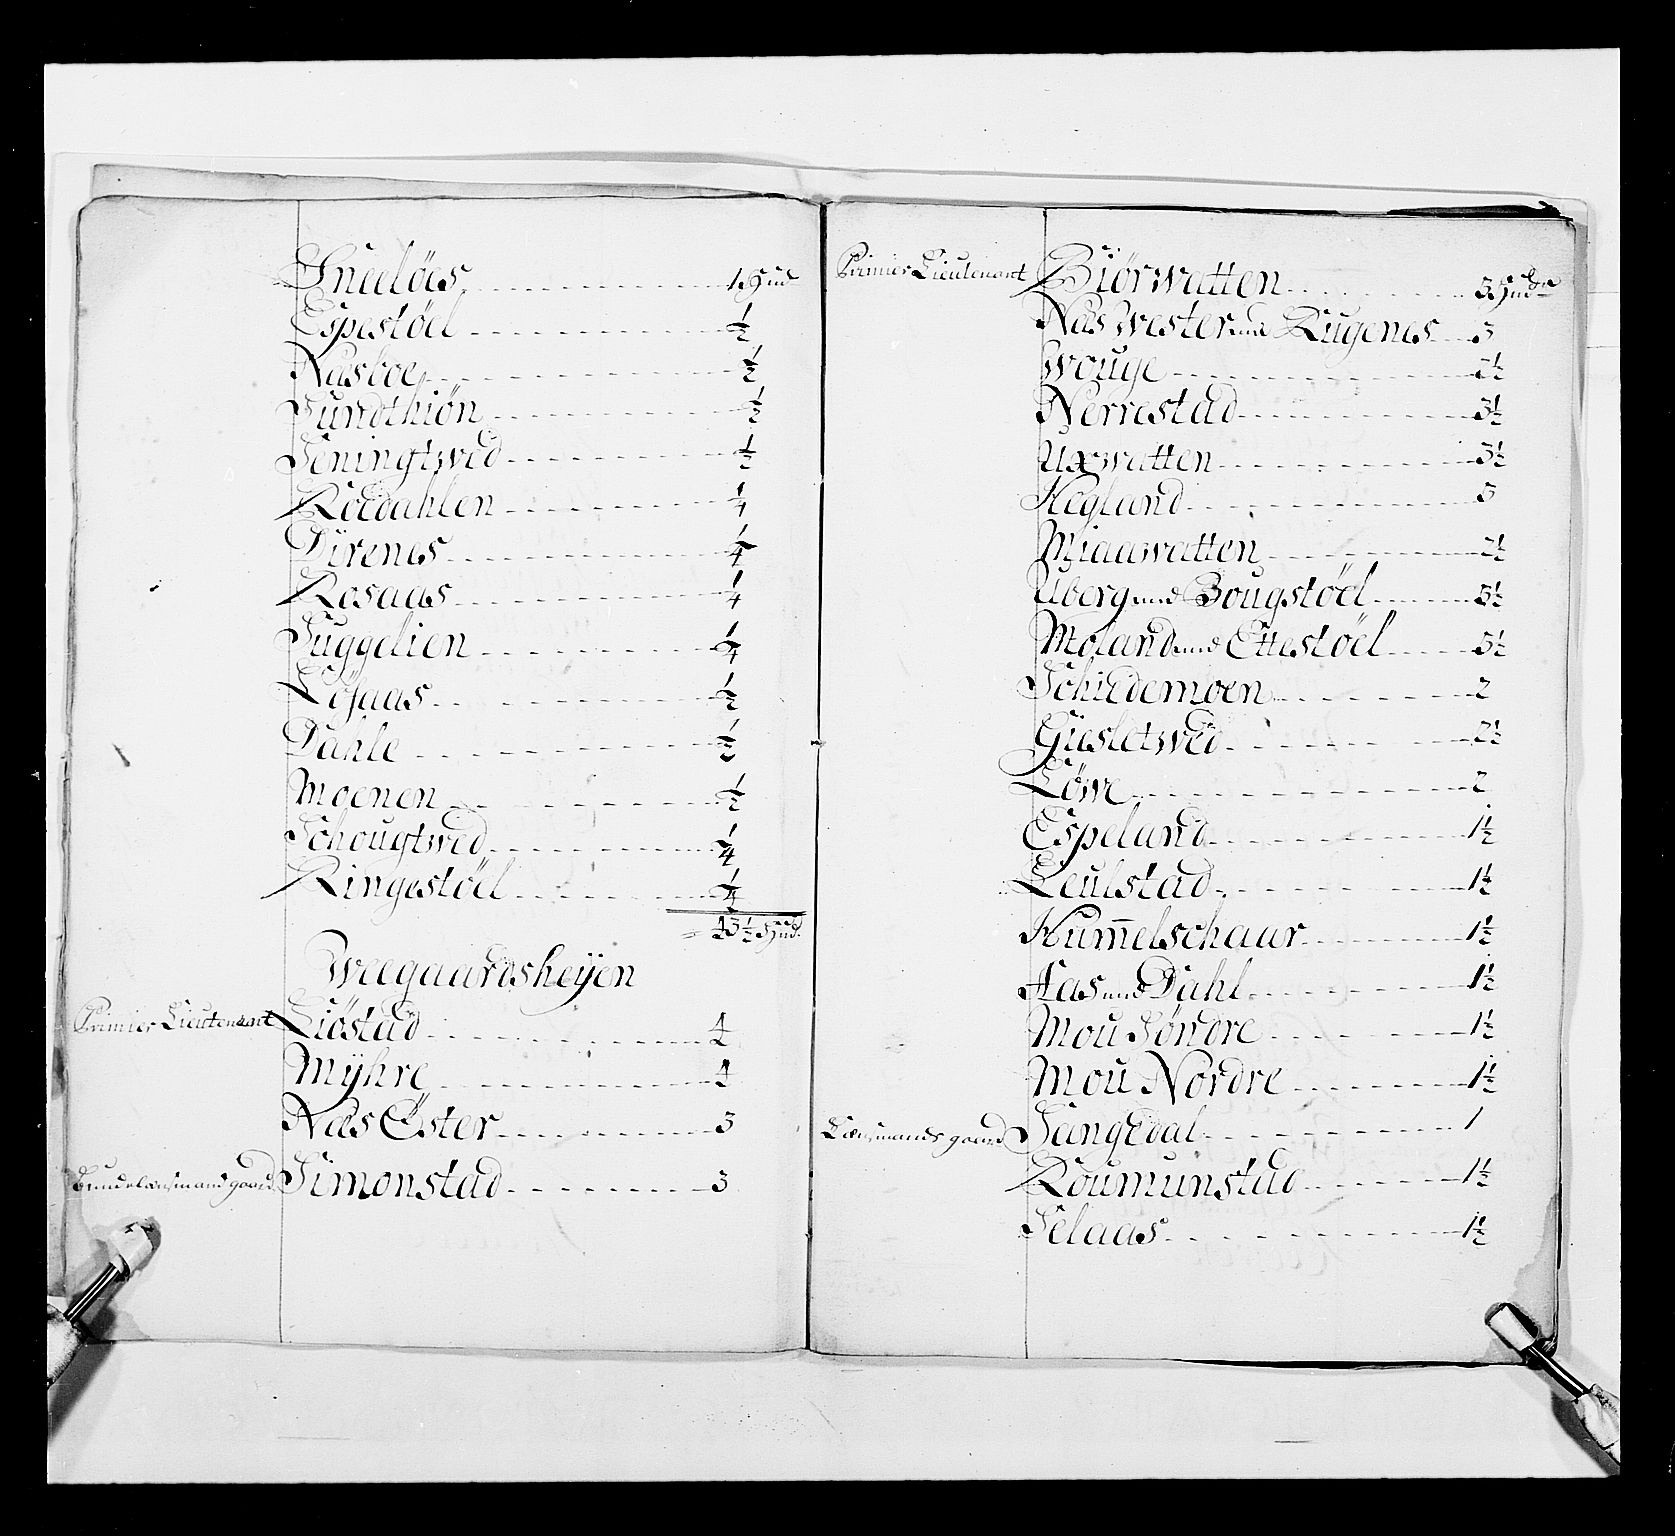 Sneelöes 1 Hud
Espestöel ½
Nasboe ½
Sundthiön ½
Seningtwed ½
Roedahlen ¼
Dÿrenes ¼
Rosaas ¼
Suggelien ¼
Löfaas ½
Dahle ½
Moenen ½
Schougtwed ¼
Ringestöel ¼
43½ Hud.
Weegaardsheÿen
Primier Lieutenant Liöstad 4
Mÿhre 4
Næs Öster 3
Bundelænsmandgaard Simonstad 3
Primier Lieutenant Biörwatten 3 Huder
Næs Wester und Rugenes 3
Wouge 2½
Nerrestad 3½
Uxwatten 3½
Heglund 3
Miaawatten 2½
Uberg und Bougstöel 3½
Moland und Ettestöel 3½
Schiedemoen 2
Gieslotwed 2½
Löwe 2
Espeland 1½
Leulstad 1½
Hum̅elschaur 1½
Aas und Dahl 1½
Mou Söndre 1½
Mou Nordre 1½
Lænsmandsgaard Sangedal 1
Roumunstad 1½
Selaas 1½